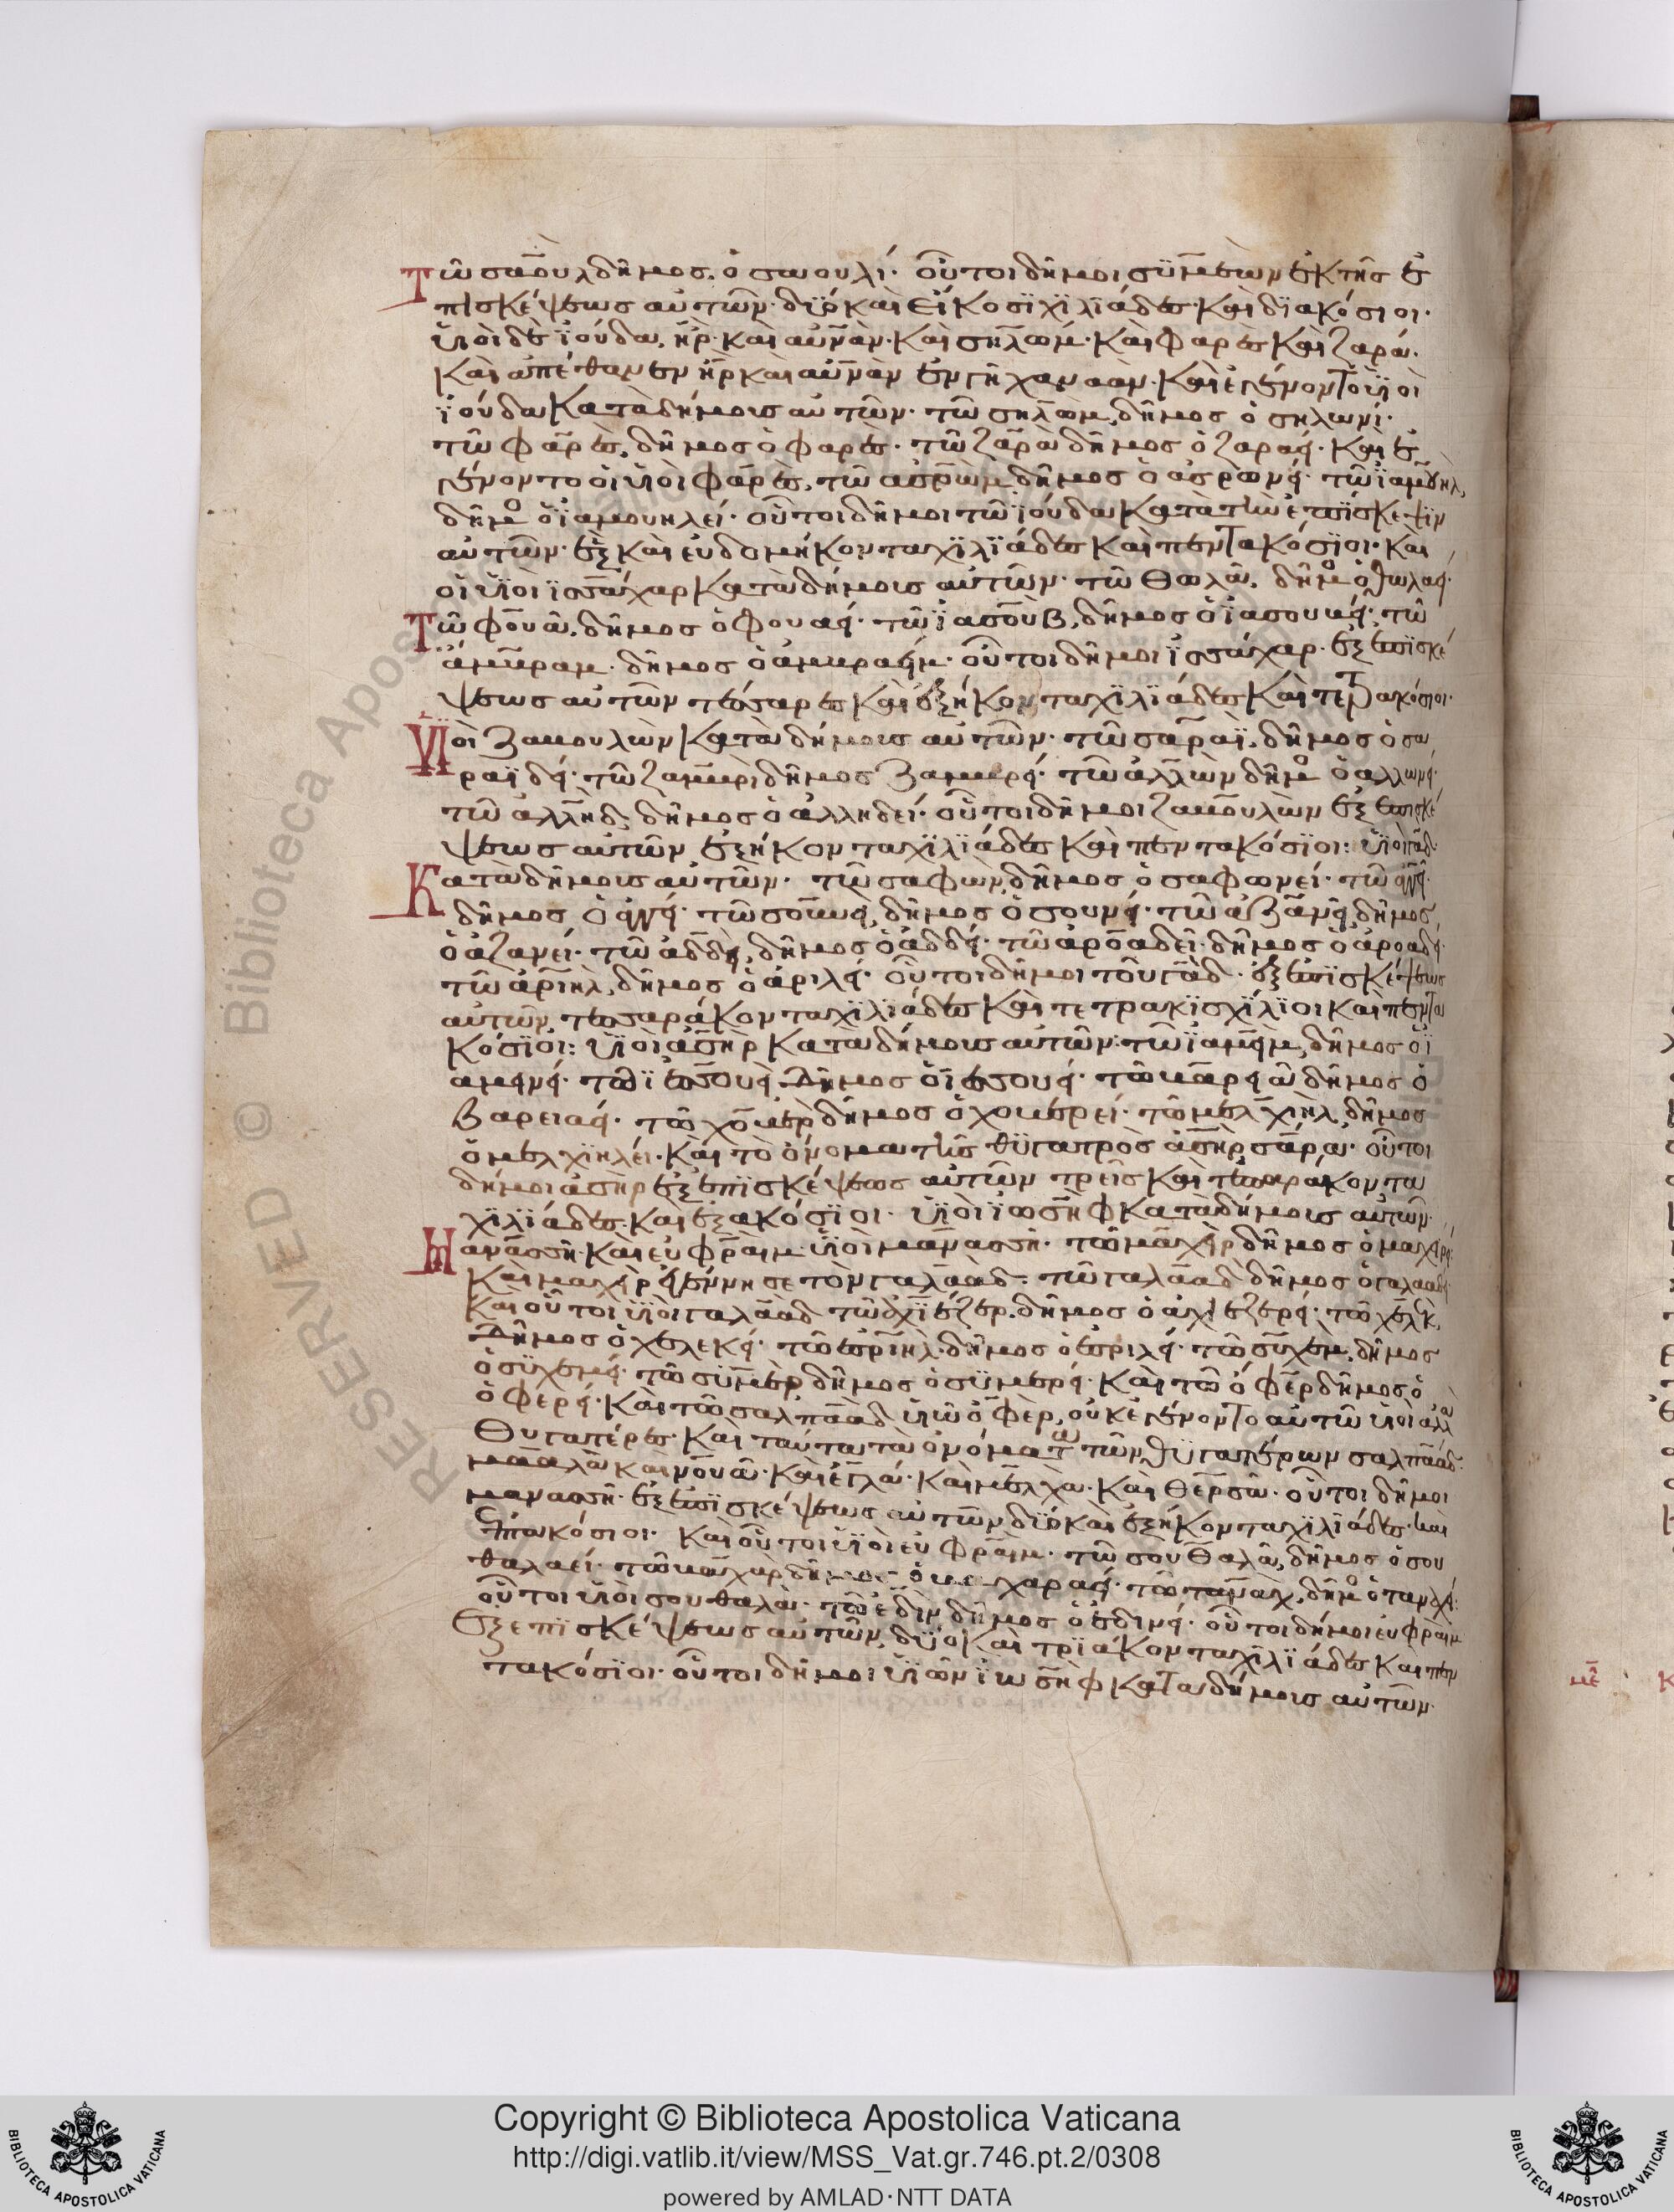 Τῶ σαοὺλ δῆμος. ὁ σαουλί· οὗτοι δῆμοι συμεὼν ἐκ τῆς ἐ
πισκέψεως αὐτῶν· δύο καὶ εἴκοσι χιλιάδες· καὶ διακόσιοι·
ὑιοὶ δὲ ϊούδα, ἢρ· καὶ αὐνὰν· καὶ σηλώμ· καὶ φαρὲς καὶ ζαρά·
καὶ ἀπέθανεν ἢρ καὶ αὐνὰν ἐν γῆ χαναάν· καὶ ἐγένοντο ὑιοὶ
ϊούδα κατὰ δήμους αὐτῶν· τῶ σηλὼμ, δῆμος ὁ σηλωνί·
τῶ φαρὲς, δῆμος ὁ φαρές· τῶ ζαρὰ δῆμος ὁ ζαραεί· καὶ ἐ
γένοντο οἱ ὑιοὶ φαρές, τῶ ἀσρὼμ, δῆμος ὁ ἀσρωνεί· τῶ ϊαμουὴλ,
δῆμος ὁ ϊαμουηλεί· οὗτοι δῆμοι τῶ ϊούδα κατὰ τὴν ἐπίσκεψιν
αὐτῶν· ἓξ καὶ ἑυδομήκοντα χιλιάδες καὶ πεντακόσιοι· καὶ
οἱ ὑιοὶ ϊσσάχαρ κατὰ δήμους αὐτῶν· τῶ θωλᾶ, δῆμος ὁ θωλαεί·
Τῶ φουᾶ, δῆμος ὁ φουαεί· τῶ ϊασοὺβ, δῆμος ὁ ϊασουβεί· τῶ
ἀμβραμ· δῆμος ὁ ἀμβραείμ· οὗτοι δῆμοι ϊσσάχαρ· ἐξ ἐπισκέ
ψεως αὐτῶν τέσσαρες καὶ ἑξήκοντα χιλιάδες καὶ τετρακόσιοι·
Ὑιοὶ ζαβουλὼν κατὰ δήμους αὐτῶν· τῶ σαραΐ, δῆμος ὁ σα
ραϊδεί· τῶ ζαμβρὶ δῆμος ζαμβρεί· τῶ ἀλλὼν δῆμος ὁ αλλωνεί·
τῶ ἀλλὴδ, δῆμος ὁ ἀλληδεί· οὗτοι δῆμοι ζαβουλὼν ἐξ ἐπισκέ
ψεως αὐτῶν ἑξήκοντα χιλιάδες καὶ πεντακόσιοι: ὑιοὶ γάδ·
Κατὰ δήμους αὐτῶν· τῶ σαφὼν, δῆμος ὁ σαφωνεί· τῶ ἀγγεί·
δῆμος ὁ ἀγγεί· τῶ σουνεὶ, δῆμος ὁ σουνεί· τῶ ἀζανεὶ, δῆμος
ὁ ἀζανει· τῶ ἀδδεὶ, δῆμος ὁ ἀδδεί· τῶ ἀροαδεῖ· δῆμος ὁ ἀροαδεί·
τῶ ἀριὴλ, δῆμος ὁ ἀριλεί· οὗτοι δῆμοι τοῦ γάδ· ἐξ ἐπισκέψεως
αὐτῶν, τεσσαράκοντα χιλιάδες καὶ τετρακισχίλιοι καὶ πεντα
κόσιοι: ὑιοὶ ἀσὴρ κατὰ δήμους αὐτῶν· τῶ ϊαμεὶμ, δῆμος ὁ ϊ
αμεινεί· τῶ ϊεσουὶ δῆμος ὁ ϊεσουεί· τῶ βαρειᾶ δῆμος ὁ
βαρειαεί· τῶ χοβὲρ δῆμος ὁ χοβερεί· τῶ μελχιὴλ, δῆμος
ὁ μελχιηλεί· καὶ τὸ ὄνομα τῆς θυγατρὸς ἀσὴρ σάρα· οὗτοι
δῆμοι ἀσὴρ ἐξ ἐπισκέψεως αὐτῶν τρεῖς καὶ τεσσαράκοντα
χιλιάδες· καὶ ἑξακόσιοι· ὑιοὶ ϊωσὴφ κατὰ δήμους αὐτῶν·
Μανάσσῆ· καὶ ἐυφράιμ· ὑιοὶ μανασσῆ· τῶ μαχεὶρ δῆμος ὁ μαχειρεί·
καὶ μαχεὶρ ἐγέννησε τὸν γαλαάδ· τῶ γαλαὰδ δῆμος ὁ γαλααδεί·
καὶ οὗτοι ὑιοὶ γαλαάδ· τῶ ἀχιέζερ. δῆμος ὁ ἀχιεζερεί· τῶ χελὲκ,
δῆμος ὁ χελεκεί· τῶ ἐσριὴλ· δῆμος ὁ ἐσριλεί· τῶ συχὲμ, δῆμος
ὁ συχεμεί· τῶ συμαὲρ δῆμος ὁ συμαερεί· καὶ τῶ ὀφὲρ δῆμος ὁ
ὀφερεί· καὶ τῶ σαλπαὰδ ὑιῶ ὀφὲρ, οὐκ ἐγένοντο αὐτῶ ὑιοὶ ἀλλὰ
θυγατέρες· καὶ ταῦτα τὰ ὀνόματα τῶν θυγατέρων σαλπαάδ·
μααλὰ καὶ νουᾶ· καὶ ἐγλά· καὶ μελχὰ· καὶ θερσᾶ· οὗτοι δῆμοι
μανασσῆ· ἐξ ἐπισκέψεως αὐτῶν δύο καὶ ἑξήκοντα χιλιάδες· καὶ
ἑπτακόσιοι· καὶ οὗτοι ὑιοὶ ἐυφράιμ· τῶ σουθαλᾶ, δῆμος ὁ σου
θαλαεί· τῶ βαχὰρ δῆμος ὁ βαχαραεί· τῶ ταναὰχ, δῆμος ὁ ταναχεί:
οὗτοι ὑιοὶ σουθαλὰ· τῶ ἐδὶν δῆμος ὁ ἐδινεί· οὗτοι δῆμοι ἐυφράιμ
ἐξ επισκέψεως αὐτῶν, δύο καὶ τριάκοντα χιλιάδες καὶ πεν
τακόσιοι· οὗτοι δῆμοι ὑιῶν ϊωσὴφ κατὰ δήμους αὐτῶν·
μὲ
RESERVED © Biblioteca Apostolica Vaticana
Copyright © Biblioteca Apostolica Vaticana
http://digi.vatlib.it/view/MSS_Vat.gr.746.pt.2/0308
powered by AMLAD·NTT DATA
BIBLIOTECA APOSTOLICA VATICANA
BIBLIOTECA APOSTOLICA VATICANA